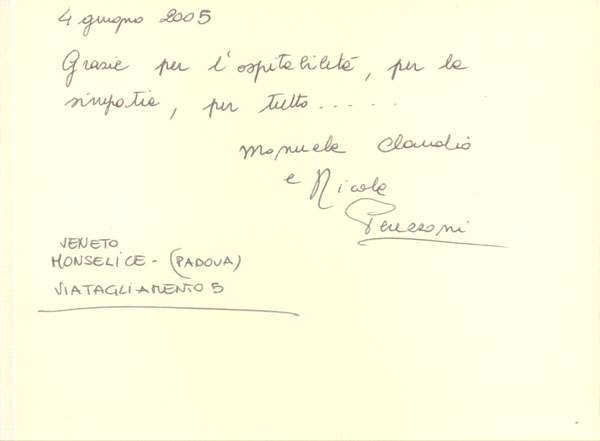 4 giugno 2005
Grazie per l'ospitalità, per la
simpatia, per tutto.....
Manuela Claudio
e Nicola
VENETO
MONSELICE - (PADOVA)
VIA TAGLIAMENTO 5